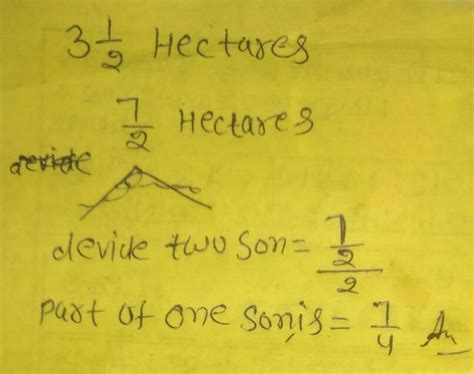 3 1/2 Hectares
7/2 Hectares
devide
devide two son = 7/2/2
part of one son is = 7/4 An